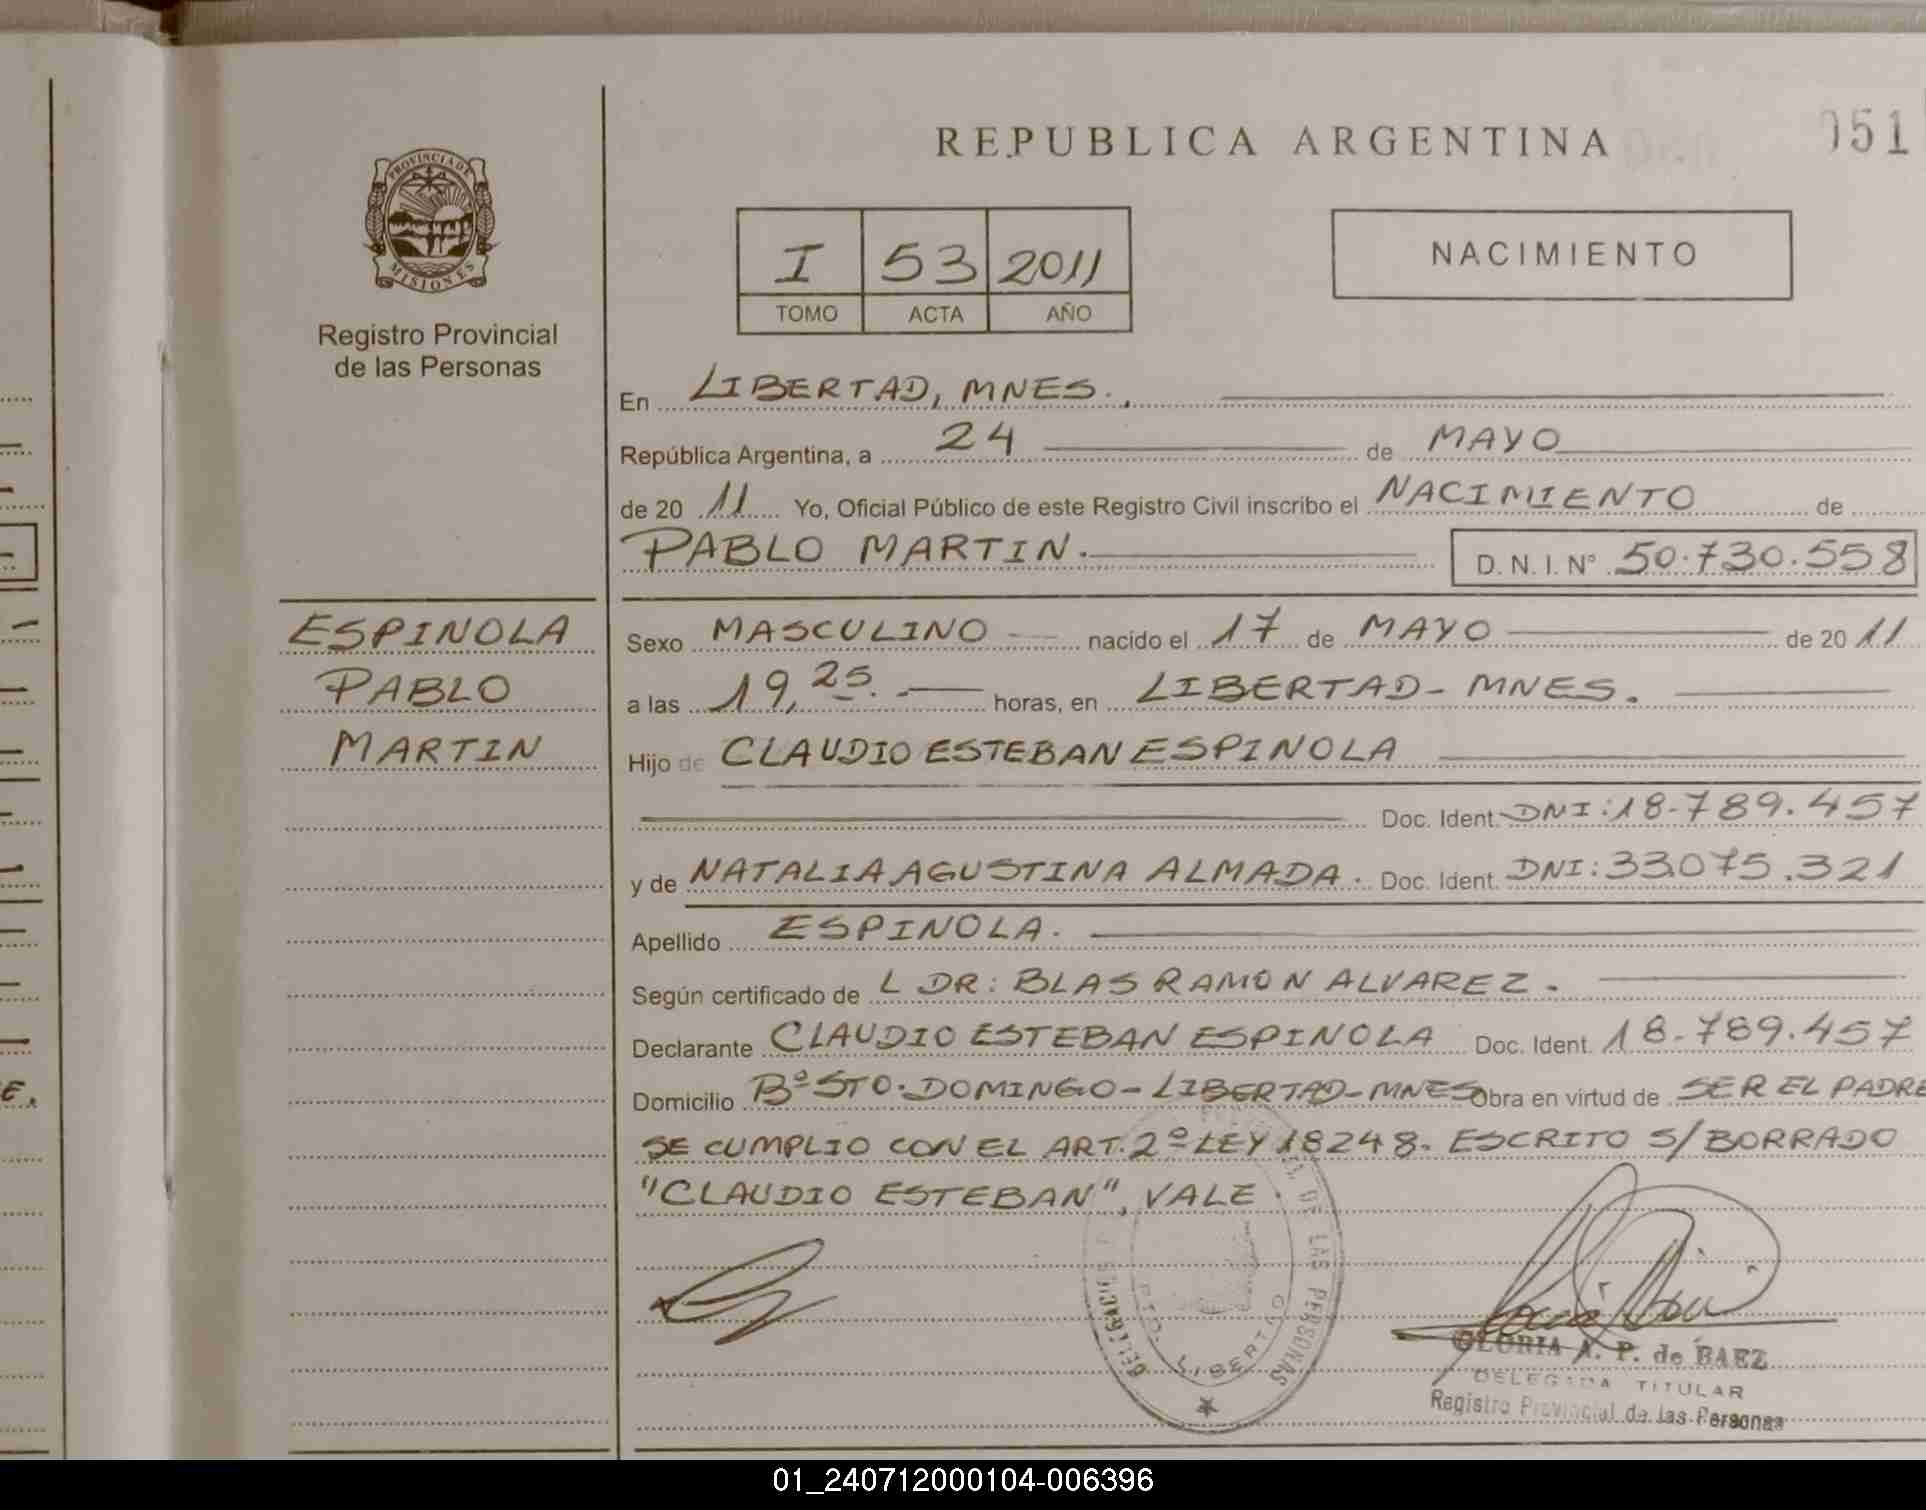 REPUBLICA ARGENTINA
051
PROVINCIA DE
MISIONES
Registro Provincial
de las Personas
I 53 2011
TOMO ACTA AÑO
NACIMIENTO
En LIBERTAD, MNES.,
República Argentina, a 24 de MAYO
de 20 11 Yo, Oficial Público de este Registro Civil inscribo el NACIMIENTO de
PABLO MARTIN. D. N. I. N° 50.730.558
ESPINOLA
PABLO
MARTIN
Sexo MASCULINO nacido el 17 de MAYO de 20 11
a las 19,25. horas, en LIBERTAD - MNES.
Hijo de CLAUDIO ESTEBAN ESPINOLA
Doc. Ident. DNI: 18.789.457
y de NATALIA AGUSTINA ALMADA. Doc. Ident. DNI: 33.075.321
Apellido ESPINOLA.
Según certificado de L DR: BLAS RAMON ALVAREZ.
Declarante CLAUDIO ESTEBAN ESPINOLA Doc. Ident. 18.789.457
Domicilio Bº STO. DOMINGO - LIBERTAD - MNES Obra en virtud de SER EL PADRE
SE CUMPLIO CON EL ART. 2º LEY 18248. ESCRITO S/ BORRADO
"CLAUDIO ESTEBAN", VALE.
DE LAS PERSONAS
LIBERTAD
GLORIA A. P. de BAEZ
DELEGADA TITULAR
Registro Provincial de las Personas
E.
01_240712000104-006396